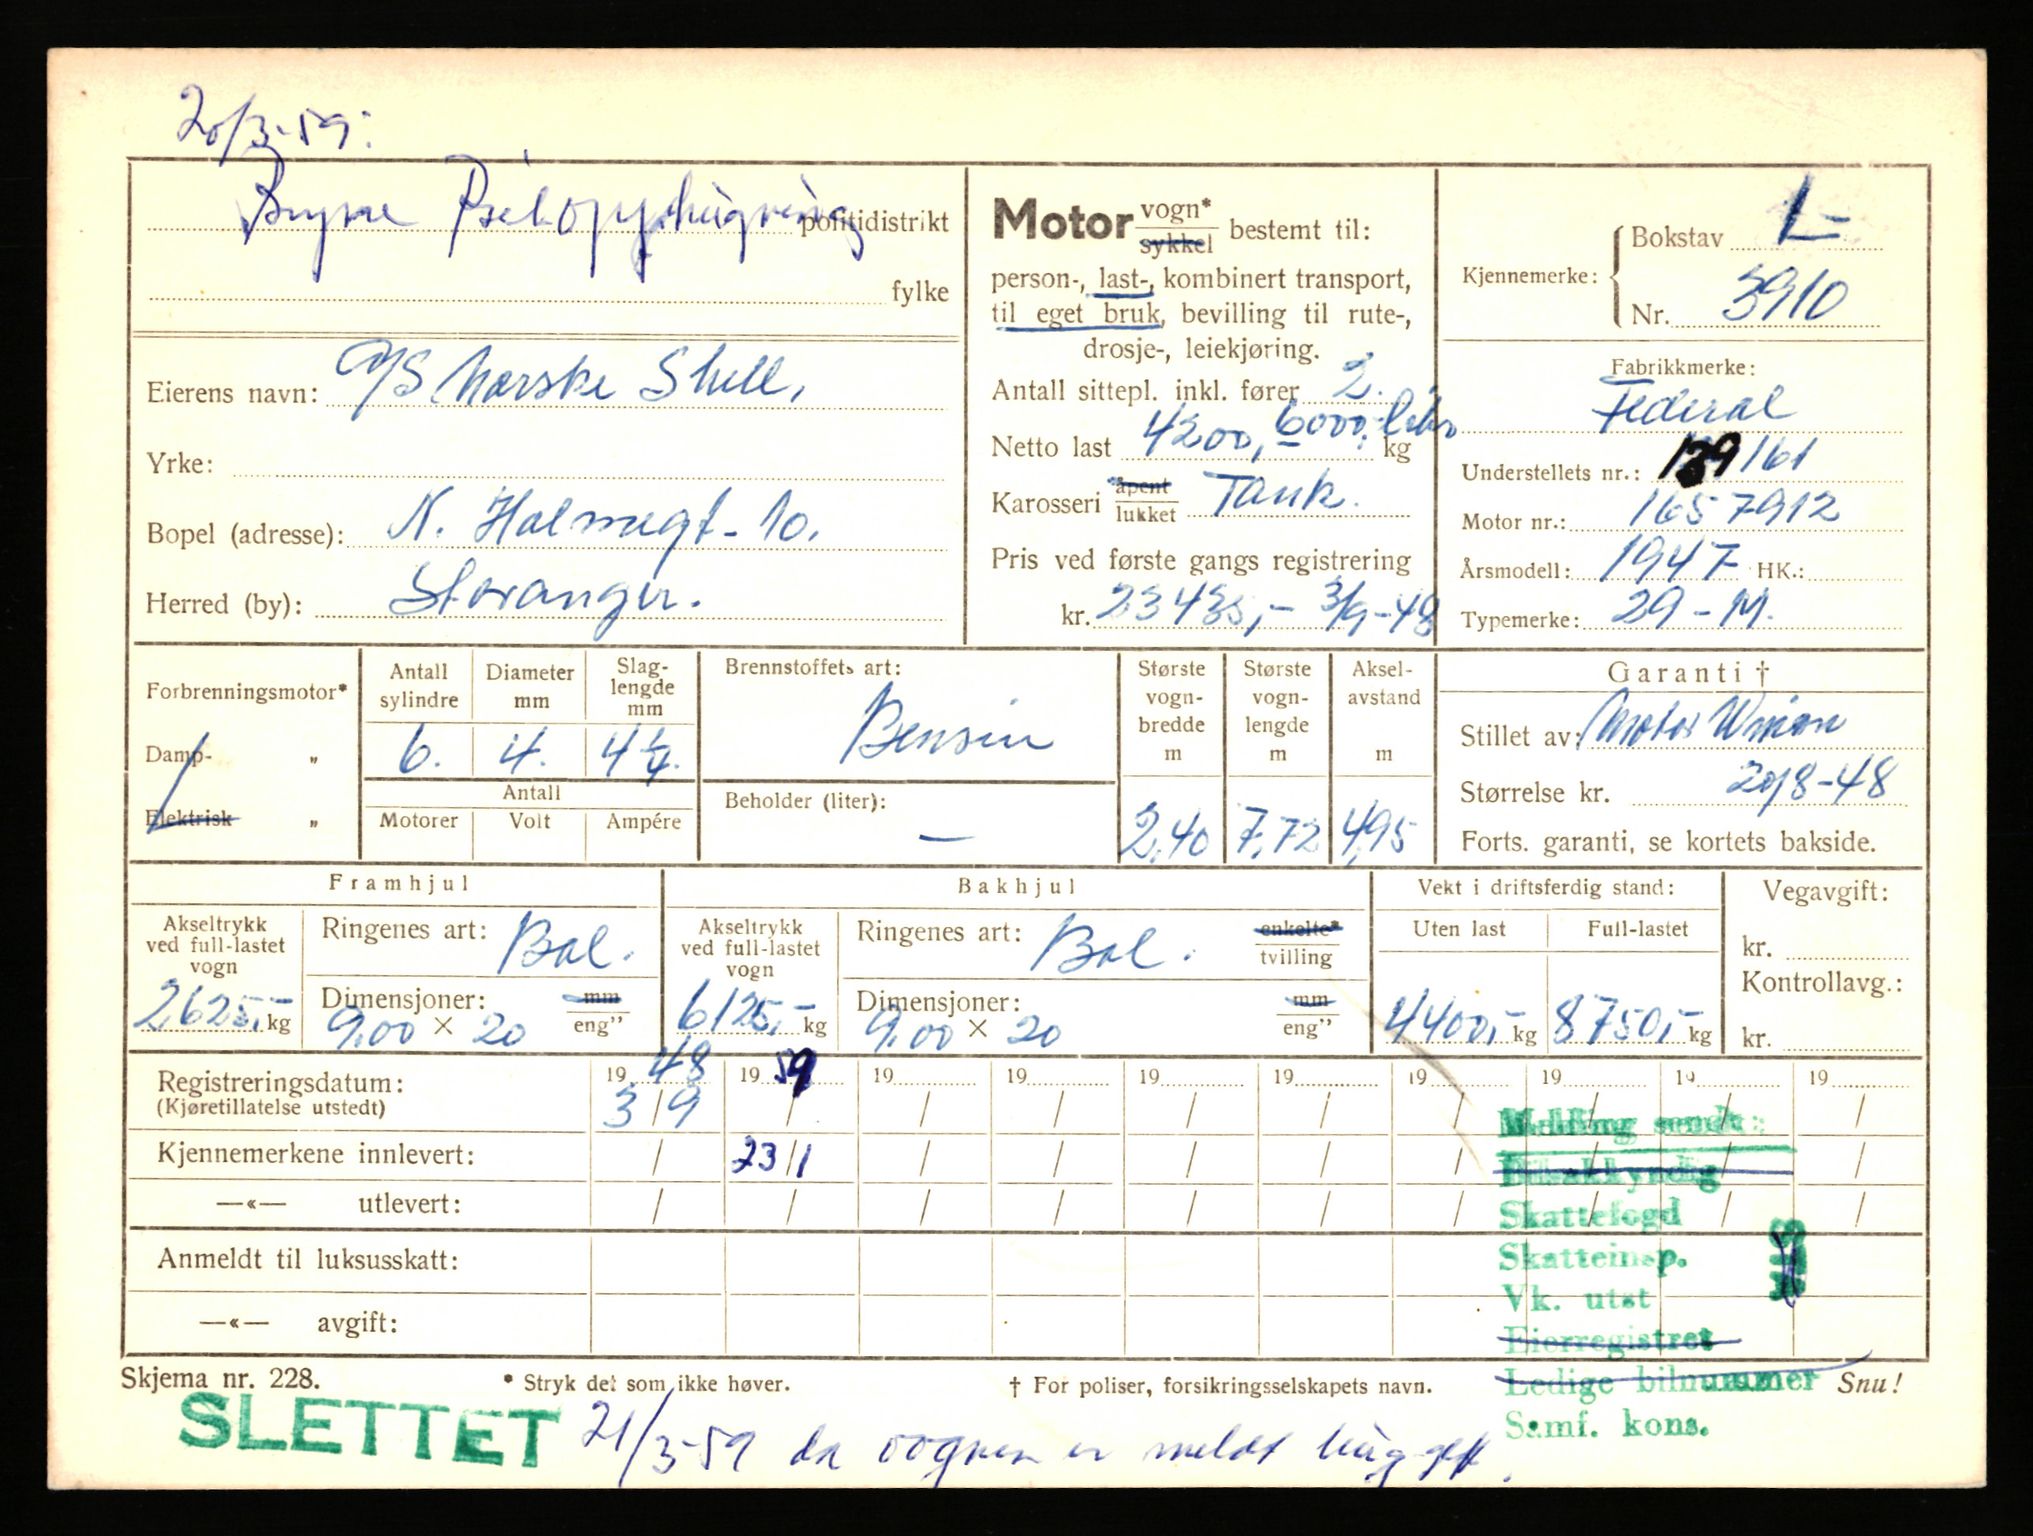 20/3-59:
Bryne Bilopphugging politidistrikt
fylke
Eierens navn: A/S Norske Shell,
Yrke:
Bopel (adresse): N. Holmegt. 10.
Herred (by): Stavanger.
Motor vogn* sykkel bestemt til:
person-, last-, kombinert transport,
til eget bruk, bevilling til rute-,
drosje-, leiekjøring.
Antall sittepl. inkl. fører 2.
Netto last 4200, 6000, kg
Karosseri åpent lukket Tank.
Pris ved første gangs registrering
kr. 23435,- 3/9-48
Kjennemerke: Bokstav L-
Nr. 3910
Fabrikkmerke:
Federal
Understellets nr.: 139161
Motor nr.: 1657912
Årsmodell: 1947 HK.:
Typemerke: 29-M.
Forbrenningsmotor*
Damp- "
Elektrisk "
Antall sylindre Diameter mm Slag-lengde mm
6. 4. 4 1/4.
Antall
Motorer Volt Ampére
Brennstoffets art:
Bensin
Beholder (liter):
—
Største vogn-bredde m Største vogn-lengde m Aksel-avstand m
2,40 7,72 4,95
Garanti †
Stillet av: Motor Union
Størrelse kr. 20/8-48
Forts. garanti, se kortets bakside.
Framhjul
Akseltrykk ved full-lastet vogn
2625,- kg
Ringenes art: Bal.
Dimensjoner: mm
9.00 × 20 eng"
Bakhjul
Akseltrykk ved full-lastet vogn
6125,- kg
Ringenes art: Bal. enkelte* tvilling
Dimensjoner: mm
9.00 × 20 eng"
Vekt i driftsferdig stand:
Uten last Full-lastet
4400,- kg 8750,- kg
Vegavgift:
kr.
Kontrollavg.:
kr.
Registreringsdatum: 19 48 19 59 19 19 19 19 19 19 19 19
(Kjøretillatelse utstedt) 3/9 / / / / / / / / /
Kjennemerkene innlevert: / 23/1 / / / / / / / /
—«— utlevert: / / / / / / / / / /
Anmeldt til luksusskatt:
—«— avgift:
Melding sendt:
Bilsakkyndig
Skattefogd
Skatteinsp.
Vk. utst
Eierregistret
Ledige bilnummer
Samf. kons.
Skjema nr. 228. * Stryk det som ikke høver. † For poliser, forsikringsselskapets navn. Snu!
SLETTET 21/3-59 da vognen er meldt hugget.